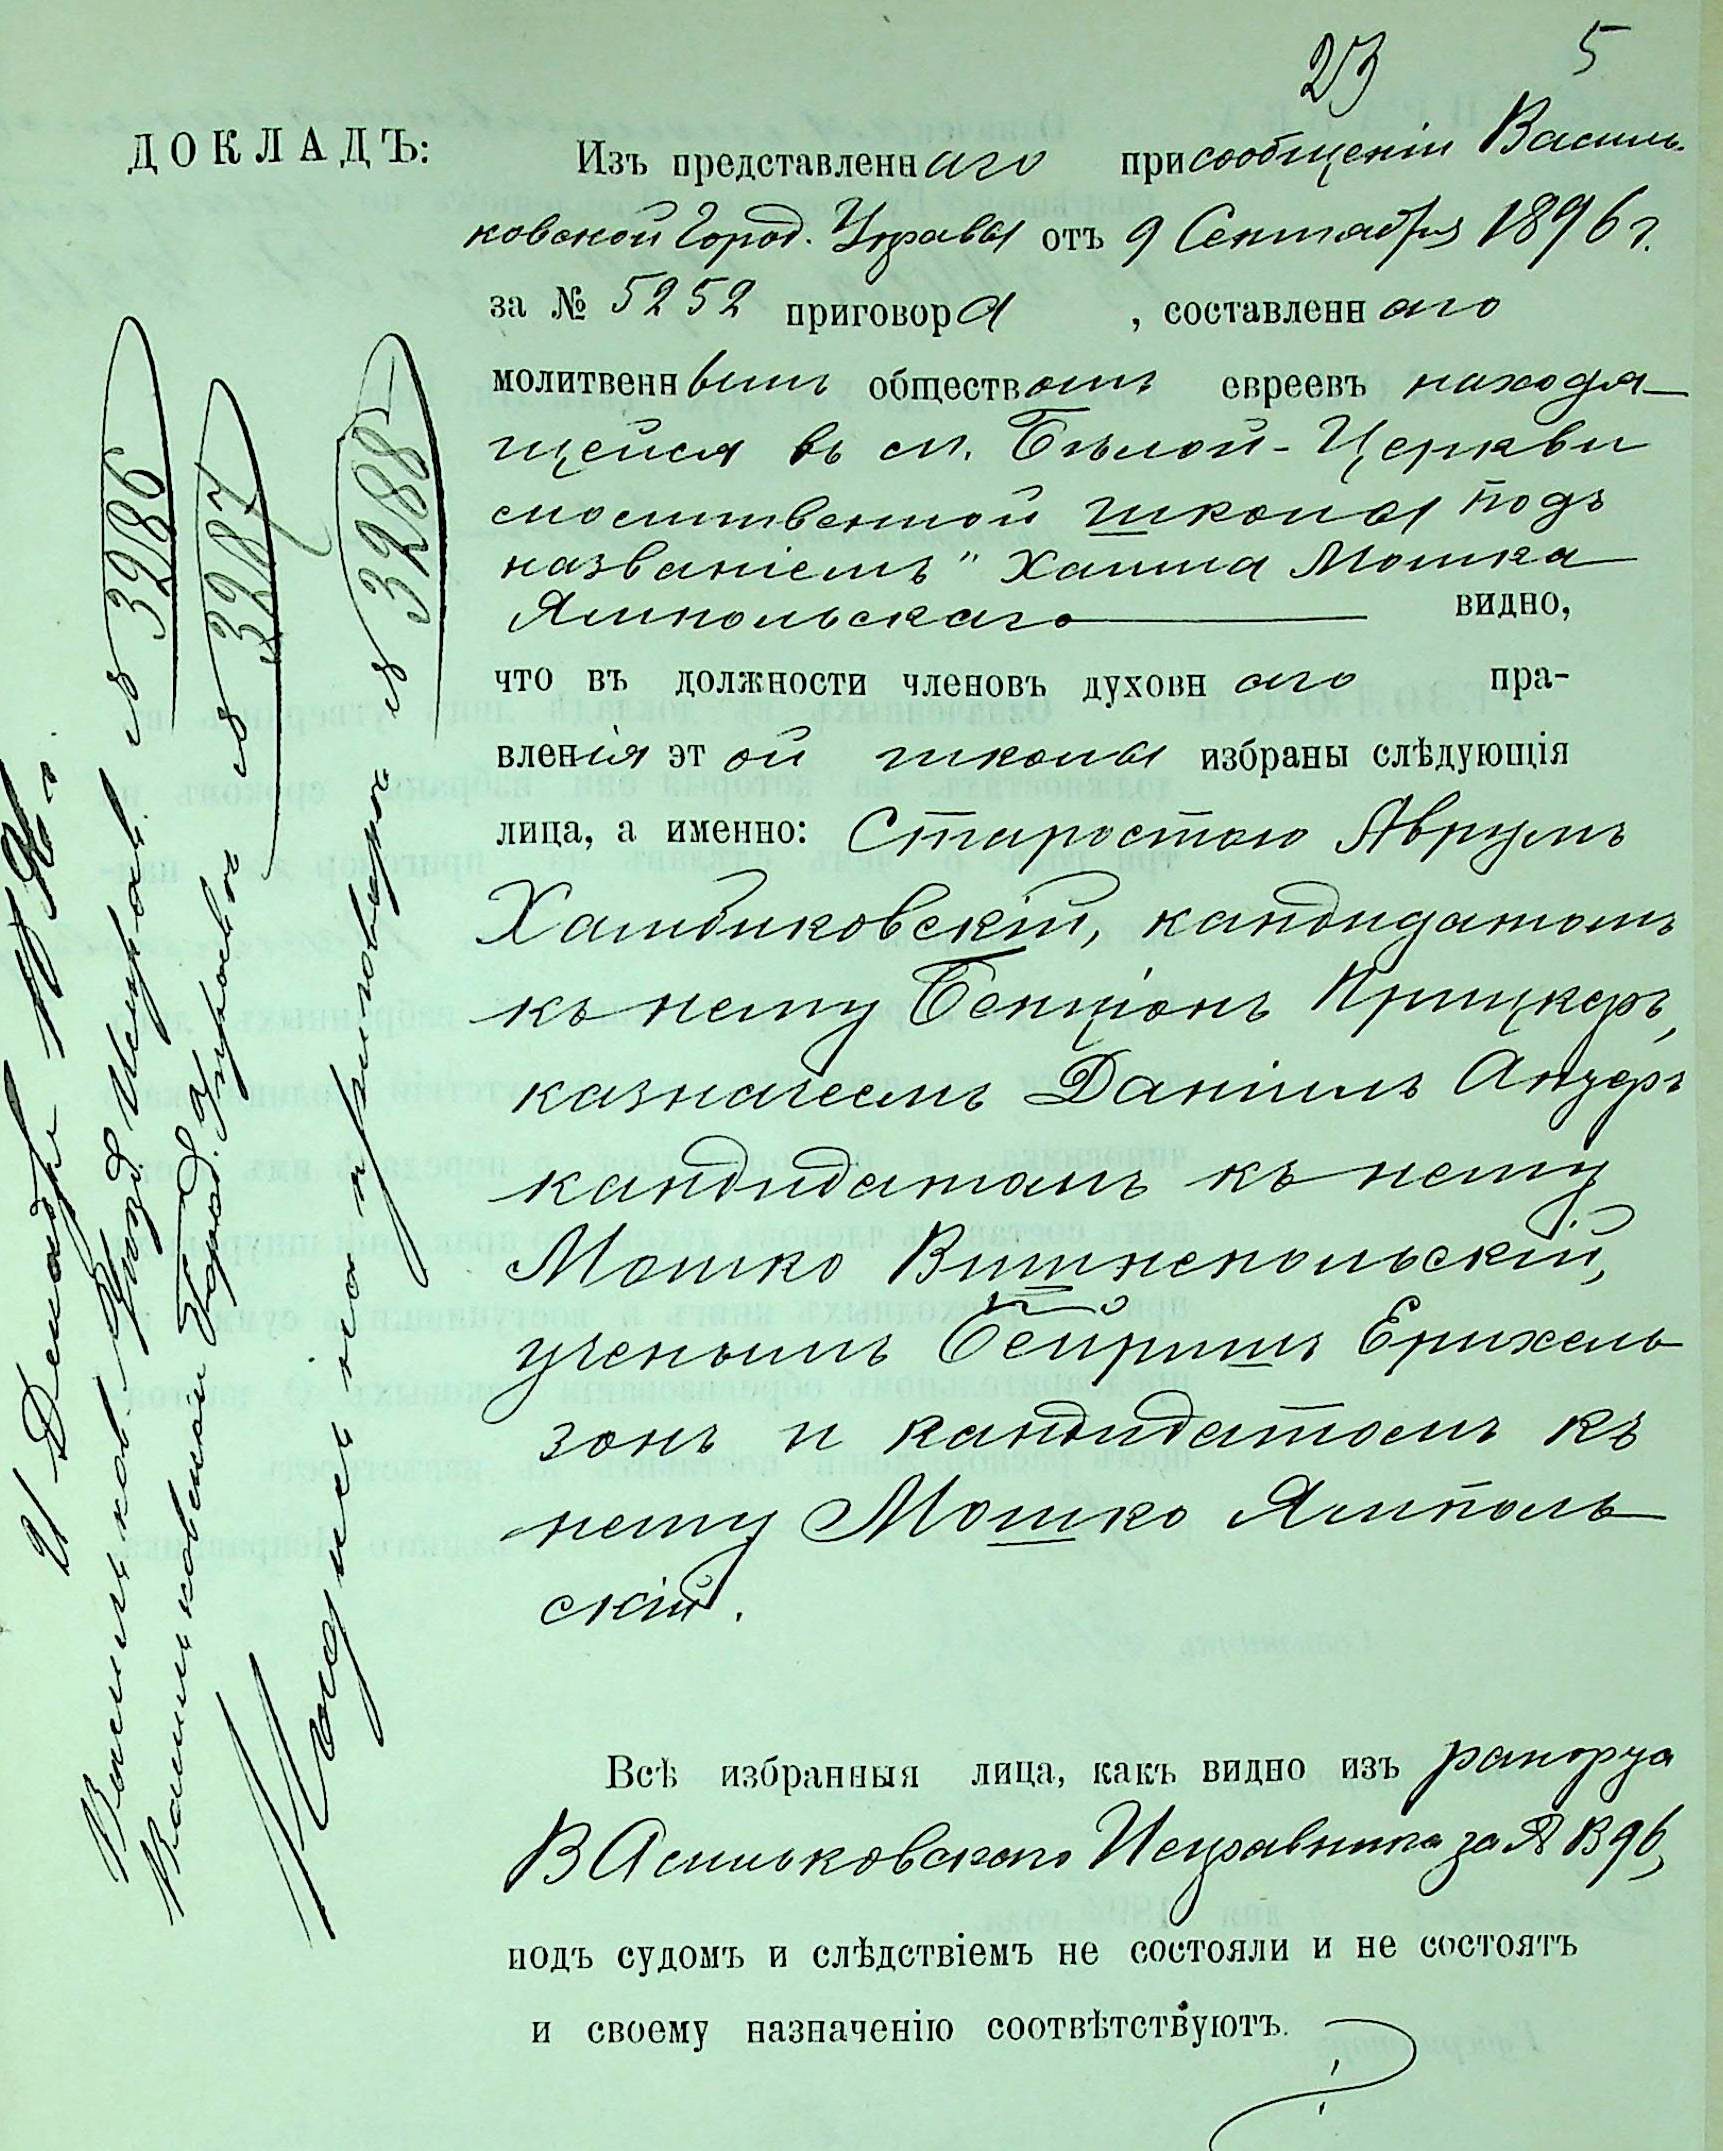 23 5
ДОКЛАДЪ:
Изъ представленнаго при сообщеніи Василь-
ковской Город. Управы отъ 9 Сентября 1896 г.
за № 5252 приговора, составленнаго
молитвеннымъ обществомъ евреевъ находя-
щейся въ м. Бѣлой-Церкви
молитвенной школы подъ
названіемъ "Хаима Мошка
Ямпольскаго видно,
что въ должности членовъ духовнаго пра-
вленія этой школы избраны слѣдующія
лица, а именно: Старостою Аврумъ
Хамбиковскій, кандидатомъ
къ нему Бенціонъ Прицкеръ,
казначеемъ Даніилъ Анзеръ
кандидатомъ къ нему
Мошко Вишнепольскій,
ученымъ Бейришъ Ерихель
зонъ и кандидатомъ къ
нему Мошко Ямполь
скій.
Всѣ избранныя лица, какъ видно изъ рапорта
Васильковскаго Исправника за №
подъ судомъ и слѣдствіемъ не состояли и не состоятъ
и своему назначенію соотвѣтствуютъ.
Декабря
Васильков. Уѣзд. Исправ. № 3286
Васильковской Город. Управы № 3287
Копіи на приговоры № 3288